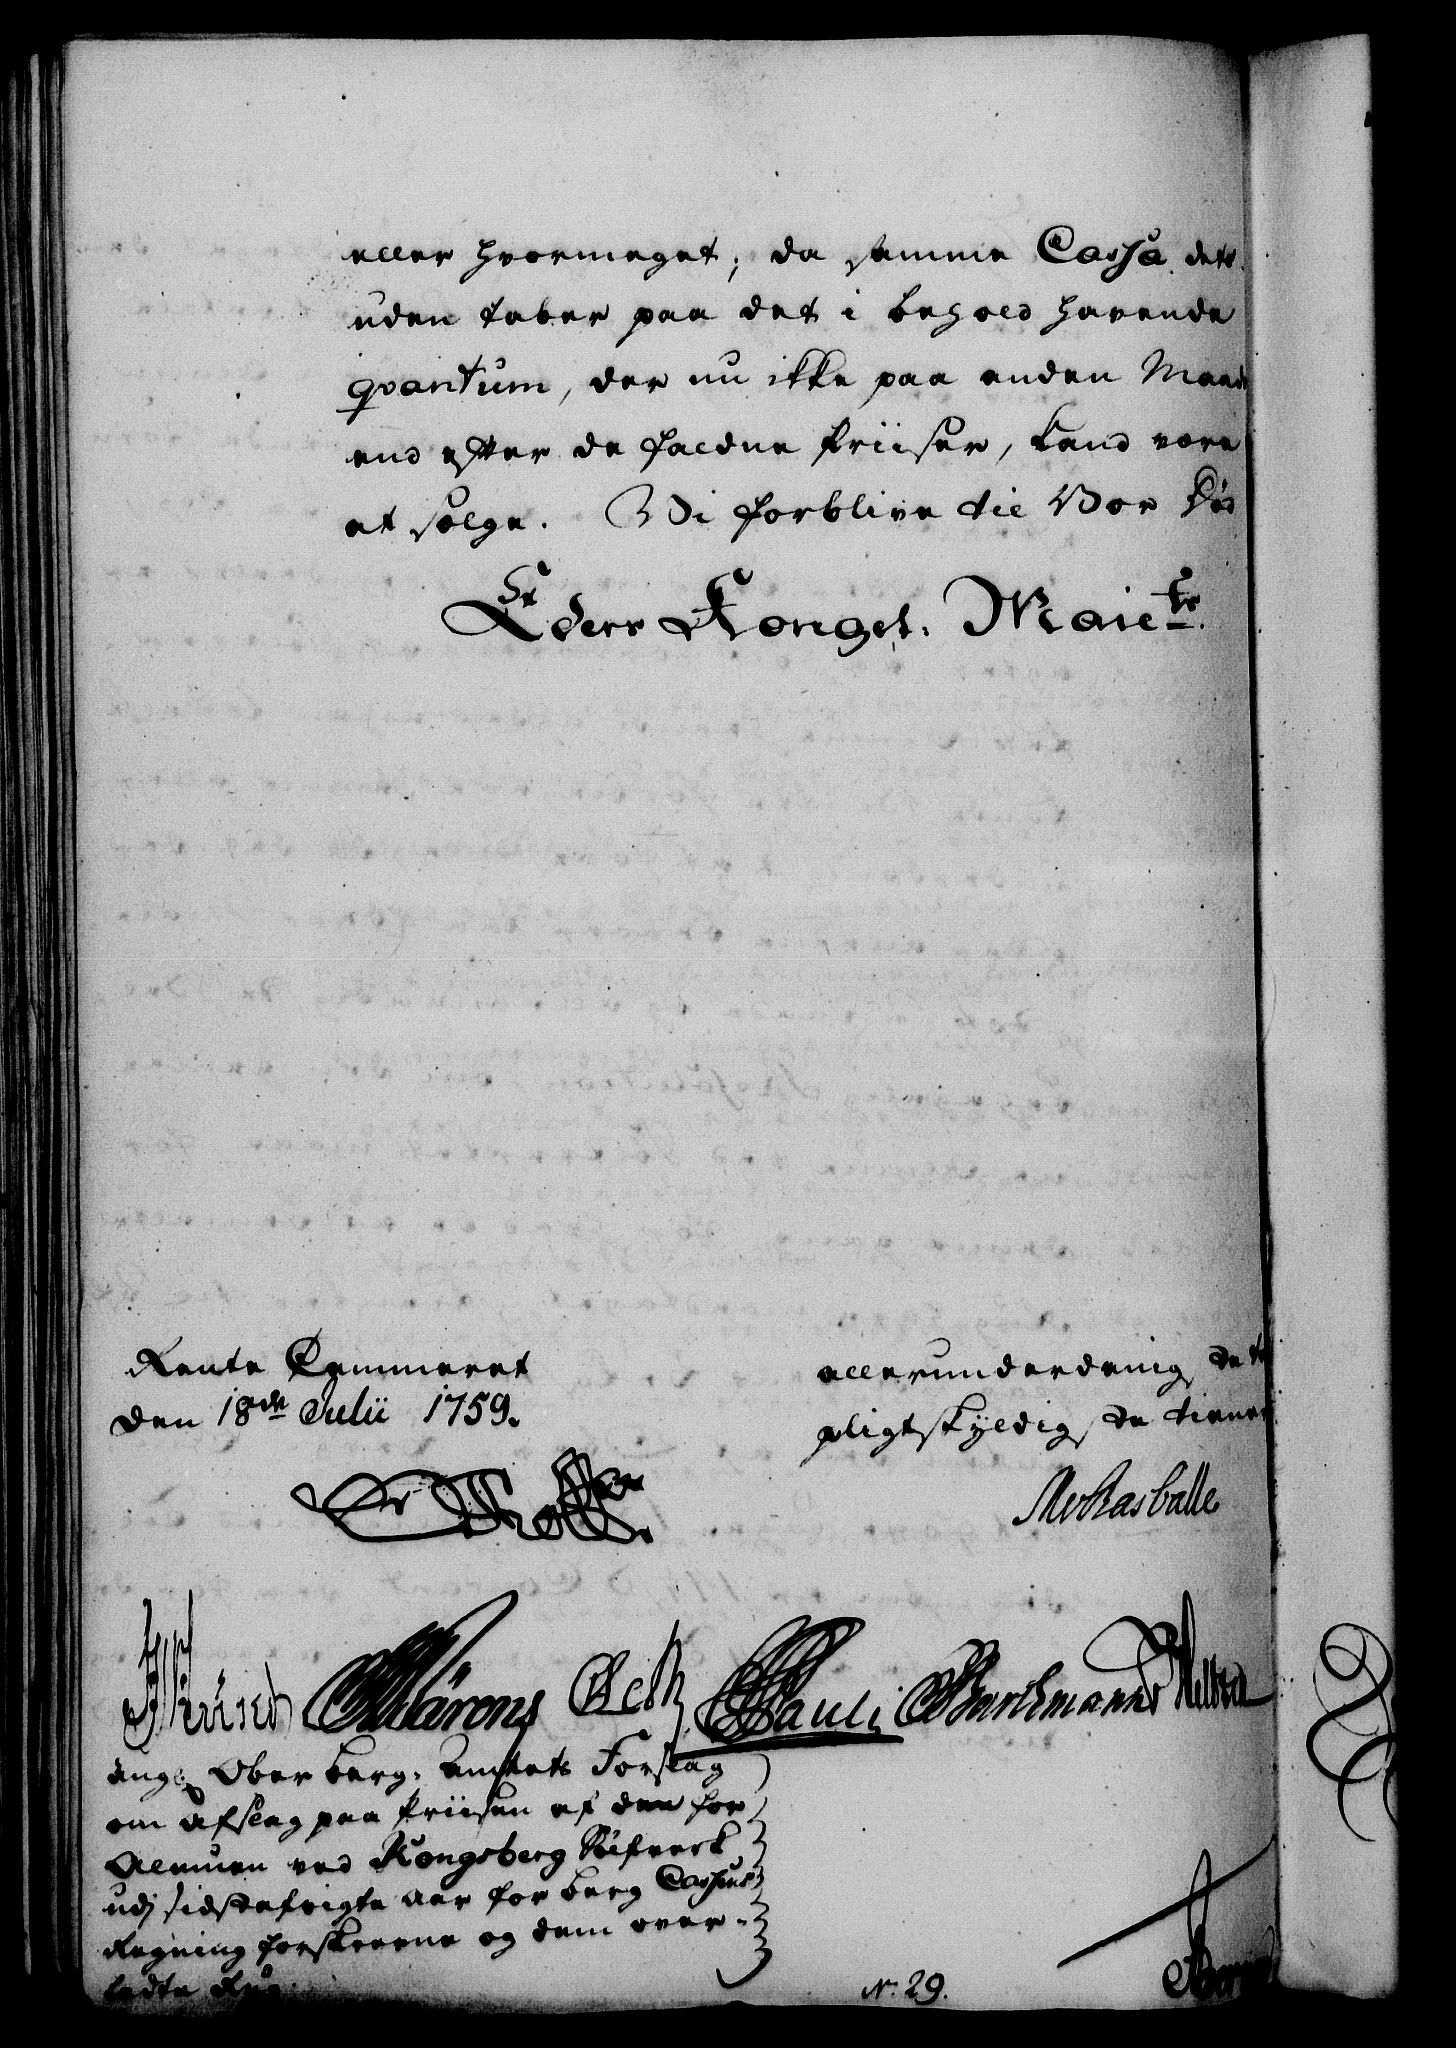 eller hvormeget; da samme Cassa des¬
uden taber paa det i behold havende
qvantum, der nu ikke paa anden Maade
end efter de faldne Priiser, kand være
at sælge. Vi forblive til Vor Død
Eders Kongel. Maits.
Rente Cammeret
den 18de Julii 1759.
allerunderdanigste
pligtskyldigste tienere
Pauli
Barthmann
ang: Ober berg-Amtets Forslag
om Afslag paa Priisen af den for
Almuen ved Kongsberg Sølfverk
udi sidstafvigte Aar for berg Cassens
Regning forskrevne og dem over¬
ladte Rug.
No. 29.